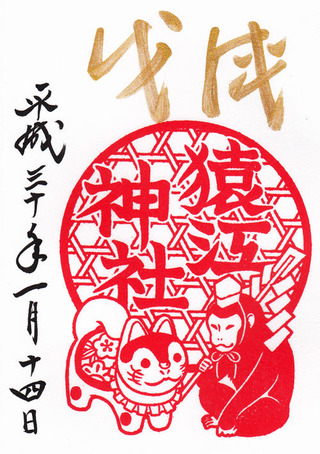 戊戌
猿江
神社
平成三十年一月十四日